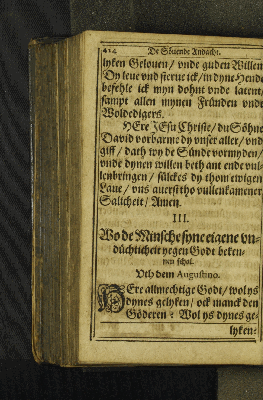 414 De Söuende Andacht.
lyken Gelouen / vnde guden Willen
Dy leue vnd sterue ick / in dyne Hende
befehle ick myn dohnt vnde latent /
sampt allen mynen Fründen vnde
Woldedigers.
HEre JEsu Christe / du Söhne
David vorbarme dy vnser aller / vnd
giff / dath wy de Sünde vormyden /
vnde dynen willen beth ant ende vul-
lenbringen / sülckes dy thom ewigen
Laue / vns auerst tho vullenkamener
Salicheit / Amen.
III.
Wo de Minsche syne eigene vn-
düchticheit yegen Godt beken-
nen schal.
Vth dem Augustino.
HEre allmechtige Godt / wol ys
dynes gelyken / ock manck den
Göderen? Wol ys dynes ge-
lyken: